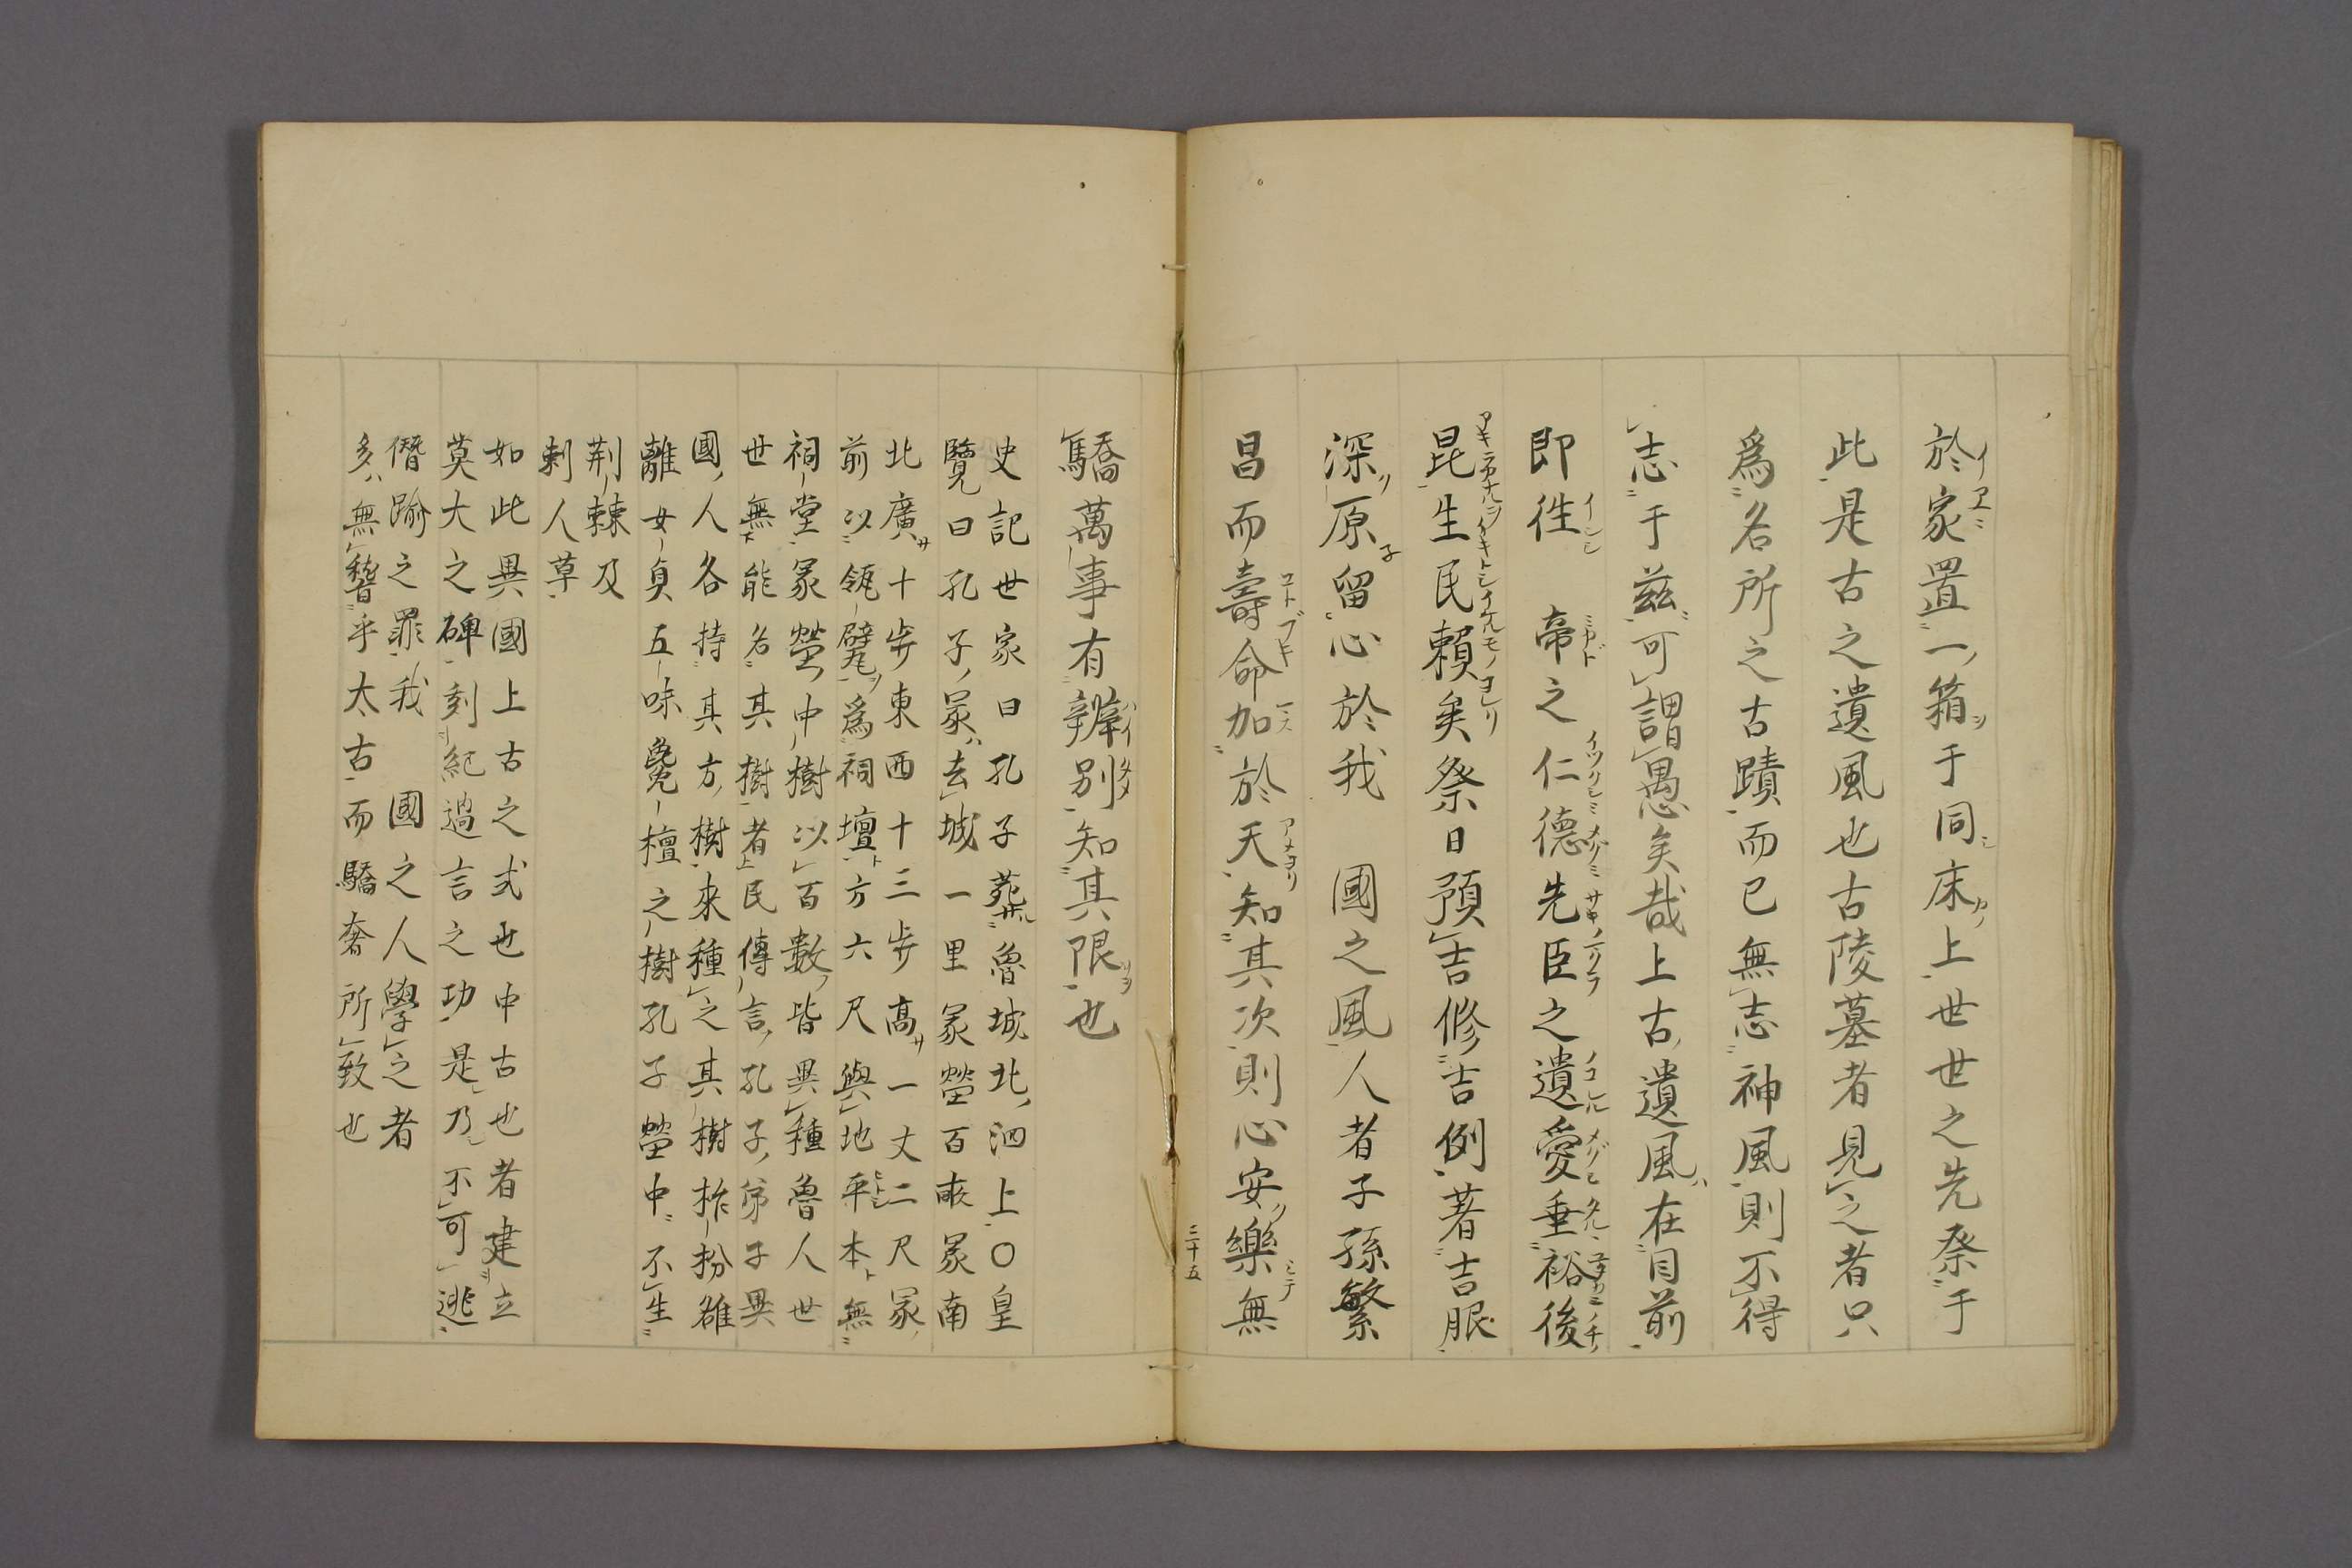 於家置一箱于同床上世世之先祭于
此是古之遺風也古陵墓者見之者只
爲名所之古蹟而已無志神風則不得
志于兹可謂愚矣哉上古遺風在目前
即徃　帝之仁德先臣之遺愛垂裕後
昆生民賴矣祭日預吉修吉例著吉服
深原留心於我　國之風人者子孫繁
昌而壽命加於天知其次則心安樂無
三十五
驕萬事有辨别知其限也
史記世家曰孔子葬魯城北泗上〇皇
覽曰孔子冢去城一里冢塋百畝冢南
北廣十步東西十三步高一丈二尺冢
前以瓴甓爲祠壇方六尺與地平本無
祠堂冢塋中樹以百數皆異種魯人世
世無能名其樹者民傳言孔子弟子異
國人各持其方樹來種之其樹柞枌雒
離女貞五味毚檀之樹孔子塋中不生
荆棘及
刺人草
如此異國上古之式也中古也者建立
莫大之碑刻紀過言之功是乃不可逃
僭踰之罪我　國之人學之者
多無稽乎太古而驕奢所致也